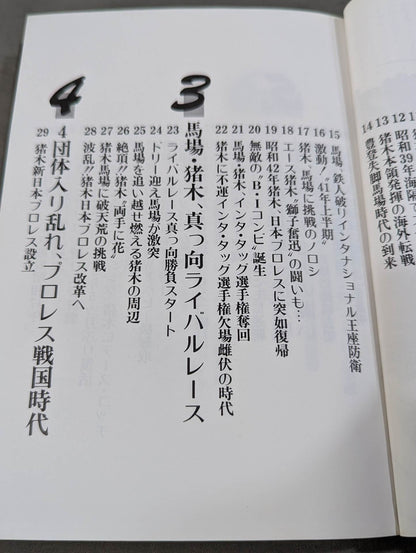 12 猪木本領発揮の海外転戦
13 昭和39年海
14 豊登失脚馬場時代の到来
15 馬場〝鉄人破りインタナショナル王座防衛
16 激動！〝41年上半期〞
17 猪木〝馬場に挑戦のノロシ
18 エース猪木〝獅子奮迅〞の闘いも…
19 昭和42年猪木、日本プロレスに突如復帰
20 無敵の〝B・Iコンビ〞誕生
21 馬場・猪木、インタ・タッグ選手権奪回
22 猪木に不運インタ・タッグ選手権欠場雌伏の時代
3 馬場・猪木、真っ向ライバルレース
23 ライバルレース真っ向勝負スタート
24 ドリー迎え馬場が激突
25 馬場を追い越せ燃える猪木の周辺
26 絶頂!!猪木〝両手に花〞
27 猪木馬場に破天荒の挑戦
28 波乱!!猪木日本プロレス改革へ
4 4団体入り乱れ、プロレス戦国時代
29 猪木新日本プロレス設立